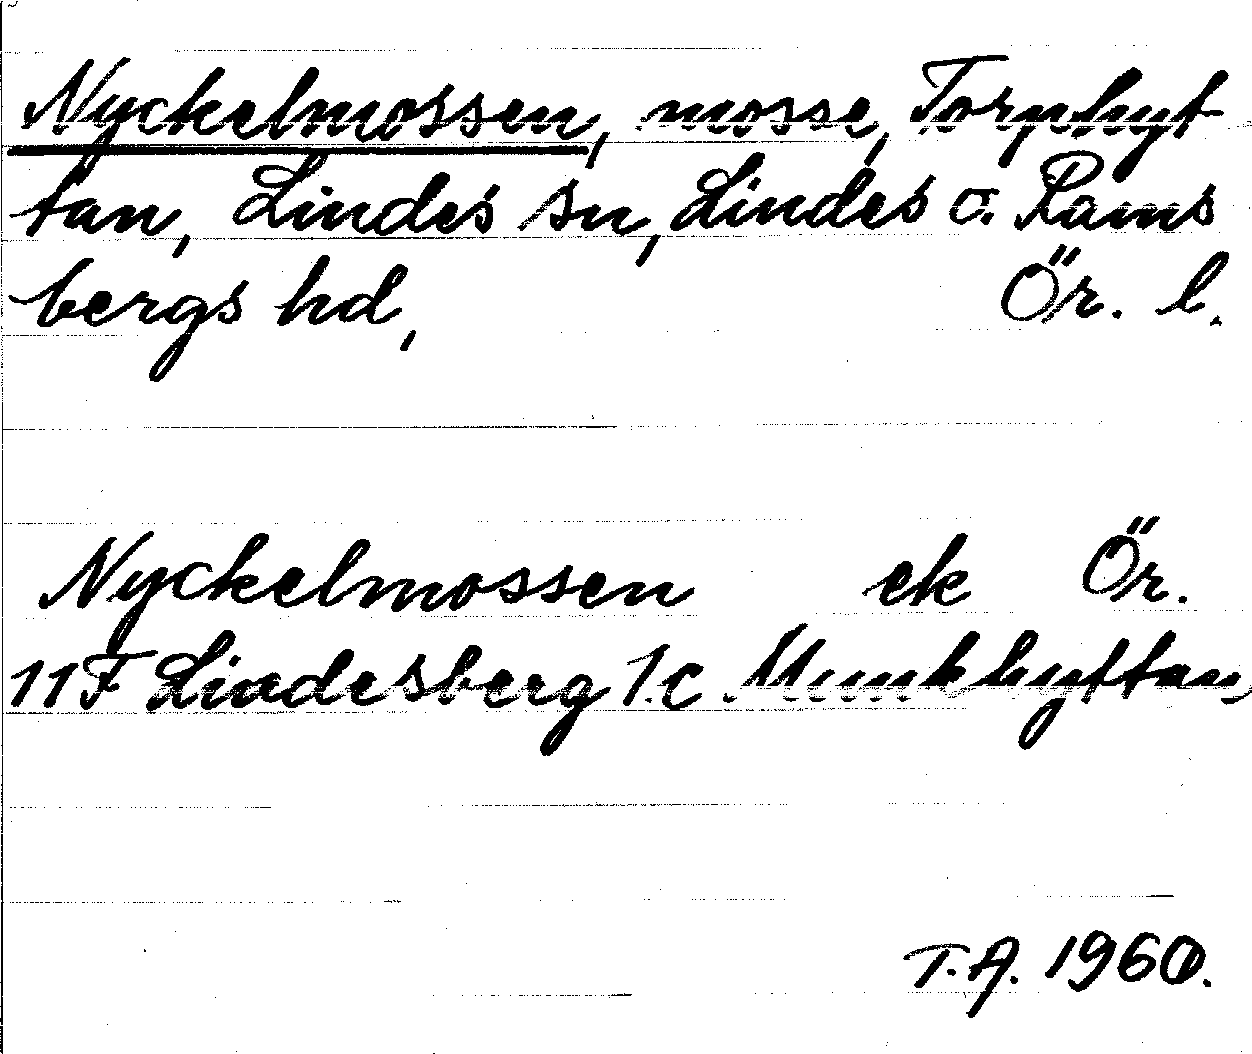 Nyckelmossen, mosse, Torphyt
tan, Lindes sn, Lindes o. Rams
bergs hd, Ör. l.
Nyckelmossen ek Ör.
11F Lindesberg 1.c Munkhyttan,
T.A. 1960.